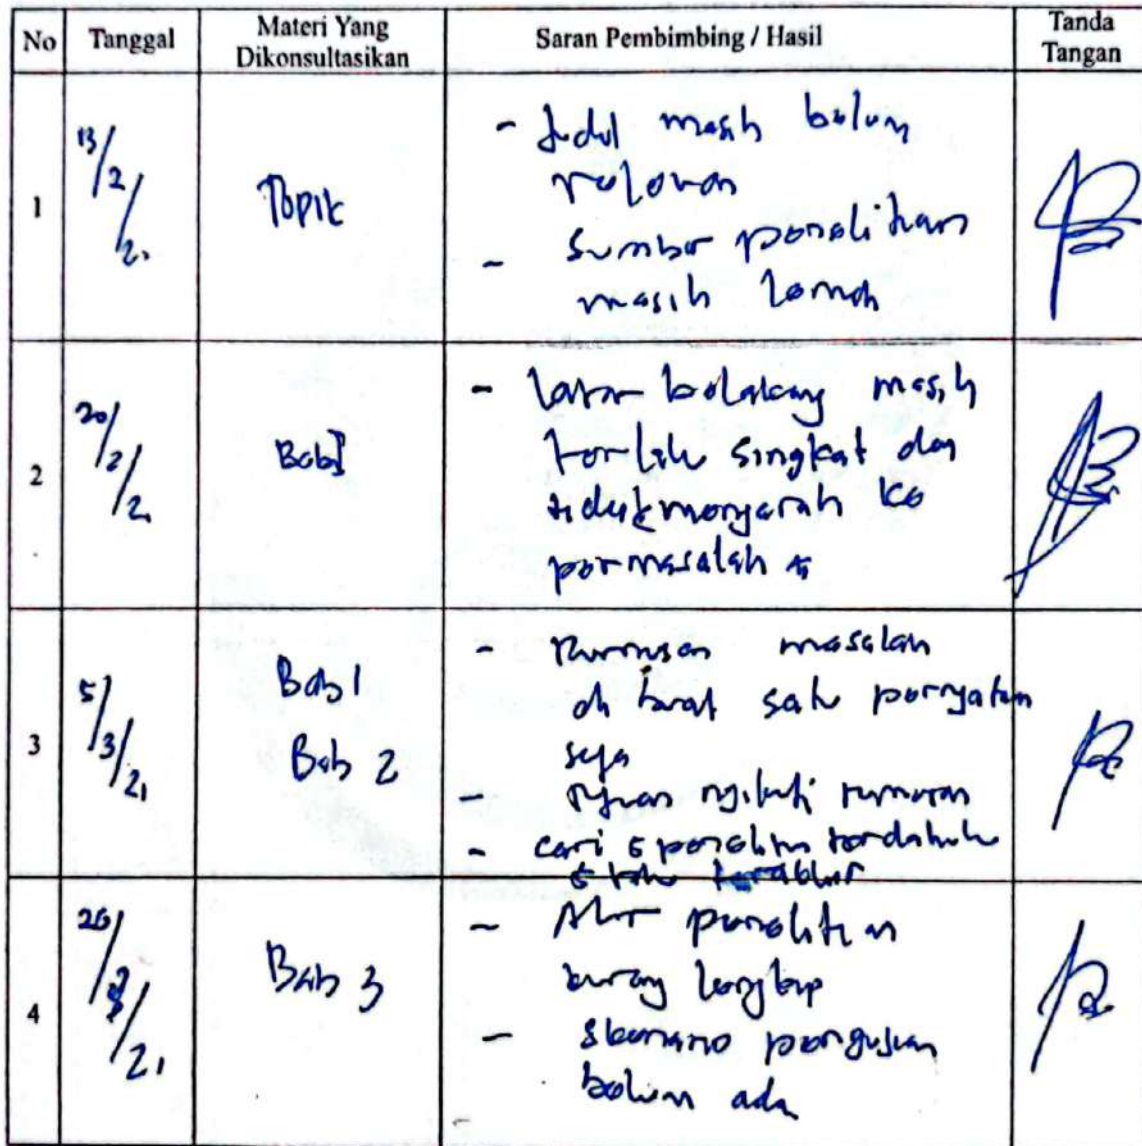 No Tanggal Materi Yang Dikonsultasikan Saran Pembimbing / Hasil Tanda Tangan
1 13/2/21 Topik
- Judul masih belum
relevan
- Sumber penelitian
masih lemah
2 20/2/21 Bab I
- latar belakang masih
terlalu singkat dan
tidak mengarah ke
permasalahan
3 5/3/21 Bab 1
Bab 2
- Rumusan masalah
di buat satu pernyataan
saja
- tujuan rumusan
- cari 5 penelitian terdahulu
5 tahun terakhir
4 26/3/21 Bab 3
- Alur penelitian
kurang lengkap
- Skenario pengujian
belum ada